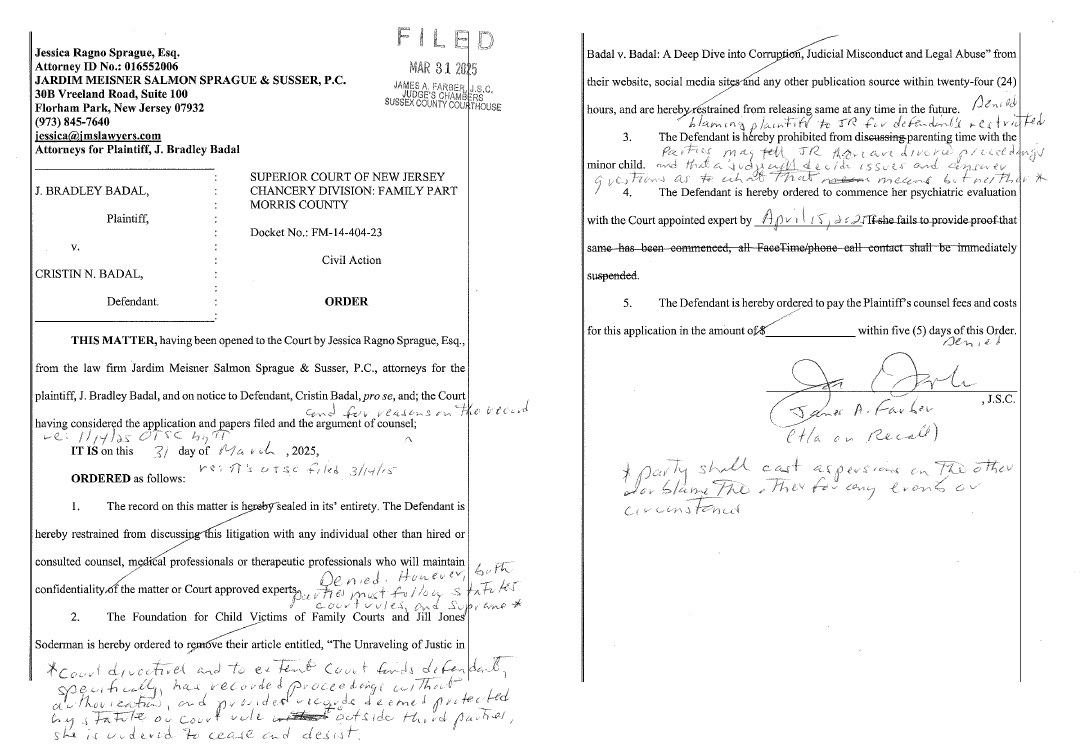 Jessica Ragno Sprague, Esq.
Attorney ID No.: 016552006
JARDIM MEISNER SALMON SPRAGUE & SUSSER, P.C.
30B Vreeland Road, Suite 100
Florham Park, New Jersey 07932
(973) 845-7640
jessica@jmslawyers.com
Attorneys for Plaintiff, J. Bradley Badal
FILED
MAR 31 2025
JAMES A. FARBER, J.S.C.
JUDGE'S CHAMBERS
SUSSEX COUNTY COURTHOUSE
J. BRADLEY BADAL,
Plaintiff,
v.
CRISTIN N. BADAL,
Defendant.
SUPERIOR COURT OF NEW JERSEY
CHANCERY DIVISION: FAMILY PART
MORRIS COUNTY
Docket No.: FM-14-404-23
Civil Action
ORDER
THIS MATTER, having been opened to the Court by Jessica Ragno Sprague, Esq.,
from the law firm Jardim Meisner Salmon Sprague & Susser, P.C., attorneys for the
plaintiff, J. Bradley Badal, and on notice to Defendant, Cristin Badal, pro se, and; the Court
and for reasons on the record
having considered the application and papers filed and the argument of counsel;
re: 1/14/25 OTSC by π
IT IS on this 31 day of March, 2025,
re: π's OTSC filed 3/14/25
ORDERED as follows:
1. The record on this matter is hereby sealed in its' entirety. The Defendant is
hereby restrained from discussing this litigation with any individual other than hired or
consulted counsel, medical professionals or therapeutic professionals who will maintain
confidentiality of the matter or Court approved experts.
Denied. However, both
parties must follow statutes
court rules, and Supreme *
2. The Foundation for Child Victims of Family Courts and Jill Jones
Soderman is hereby ordered to remove their article entitled, "The Unraveling of Justice in
* Court directives and to extent Court finds defendant,
specifically, has recorded proceedings without
authorization, and provides records deemed protected
by statute or court rule to outside third parties,
she is ordered to cease and desist.
Badal v. Badal: A Deep Dive into Corruption, Judicial Misconduct and Legal Abuse" from
their website, social media sites and any other publication source within twenty-four (24)
hours, and are hereby restrained from releasing same at any time in the future. Denied
blaming plaintiff to JR for defendant's restricted
3. The Defendant is hereby prohibited from discussing parenting time with the
Parties may tell JR there are divorce proceedings
minor child. and that a judge will decide issues and answer
questions as to what that means but neither *
4. The Defendant is hereby ordered to commence her psychiatric evaluation
with the Court appointed expert by April 15, 2025. If she fails to provide proof that
same has been commenced, all FaceTime/phone call contact shall be immediately
suspended.
5. The Defendant is hereby ordered to pay the Plaintiff's counsel fees and costs
for this application in the amount of $ within five (5) days of this Order.
Denied
, J.S.C.
James A. Farber
(t/a on Recall)
* party shall cast aspersions on the other
or blame the other for any events or